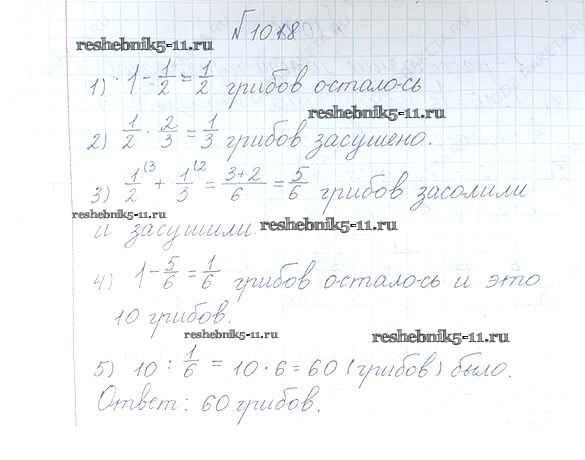 №1018
reshebnik5-11.ru
1) 1 - 1/2 = 1/2 грибов осталось
reshebnik5-11.ru
2) 1/2 · 2/3 = 1/3 грибов засушено.
3) 1/2 (3 + 1/3 (2 = 3+2/6 = 5/6 грибов засолили
reshebnik5-11.ru
reshebnik5-11.ru
и засушили.
4) 1 - 5/6 = 1/6 грибов осталось и это
10 грибов.
reshebnik5-11.ru
reshebnik5-11.ru
5) 10 : 1/6 = 10 · 6 = 60 (грибов) было.
Ответ: 60 грибов.